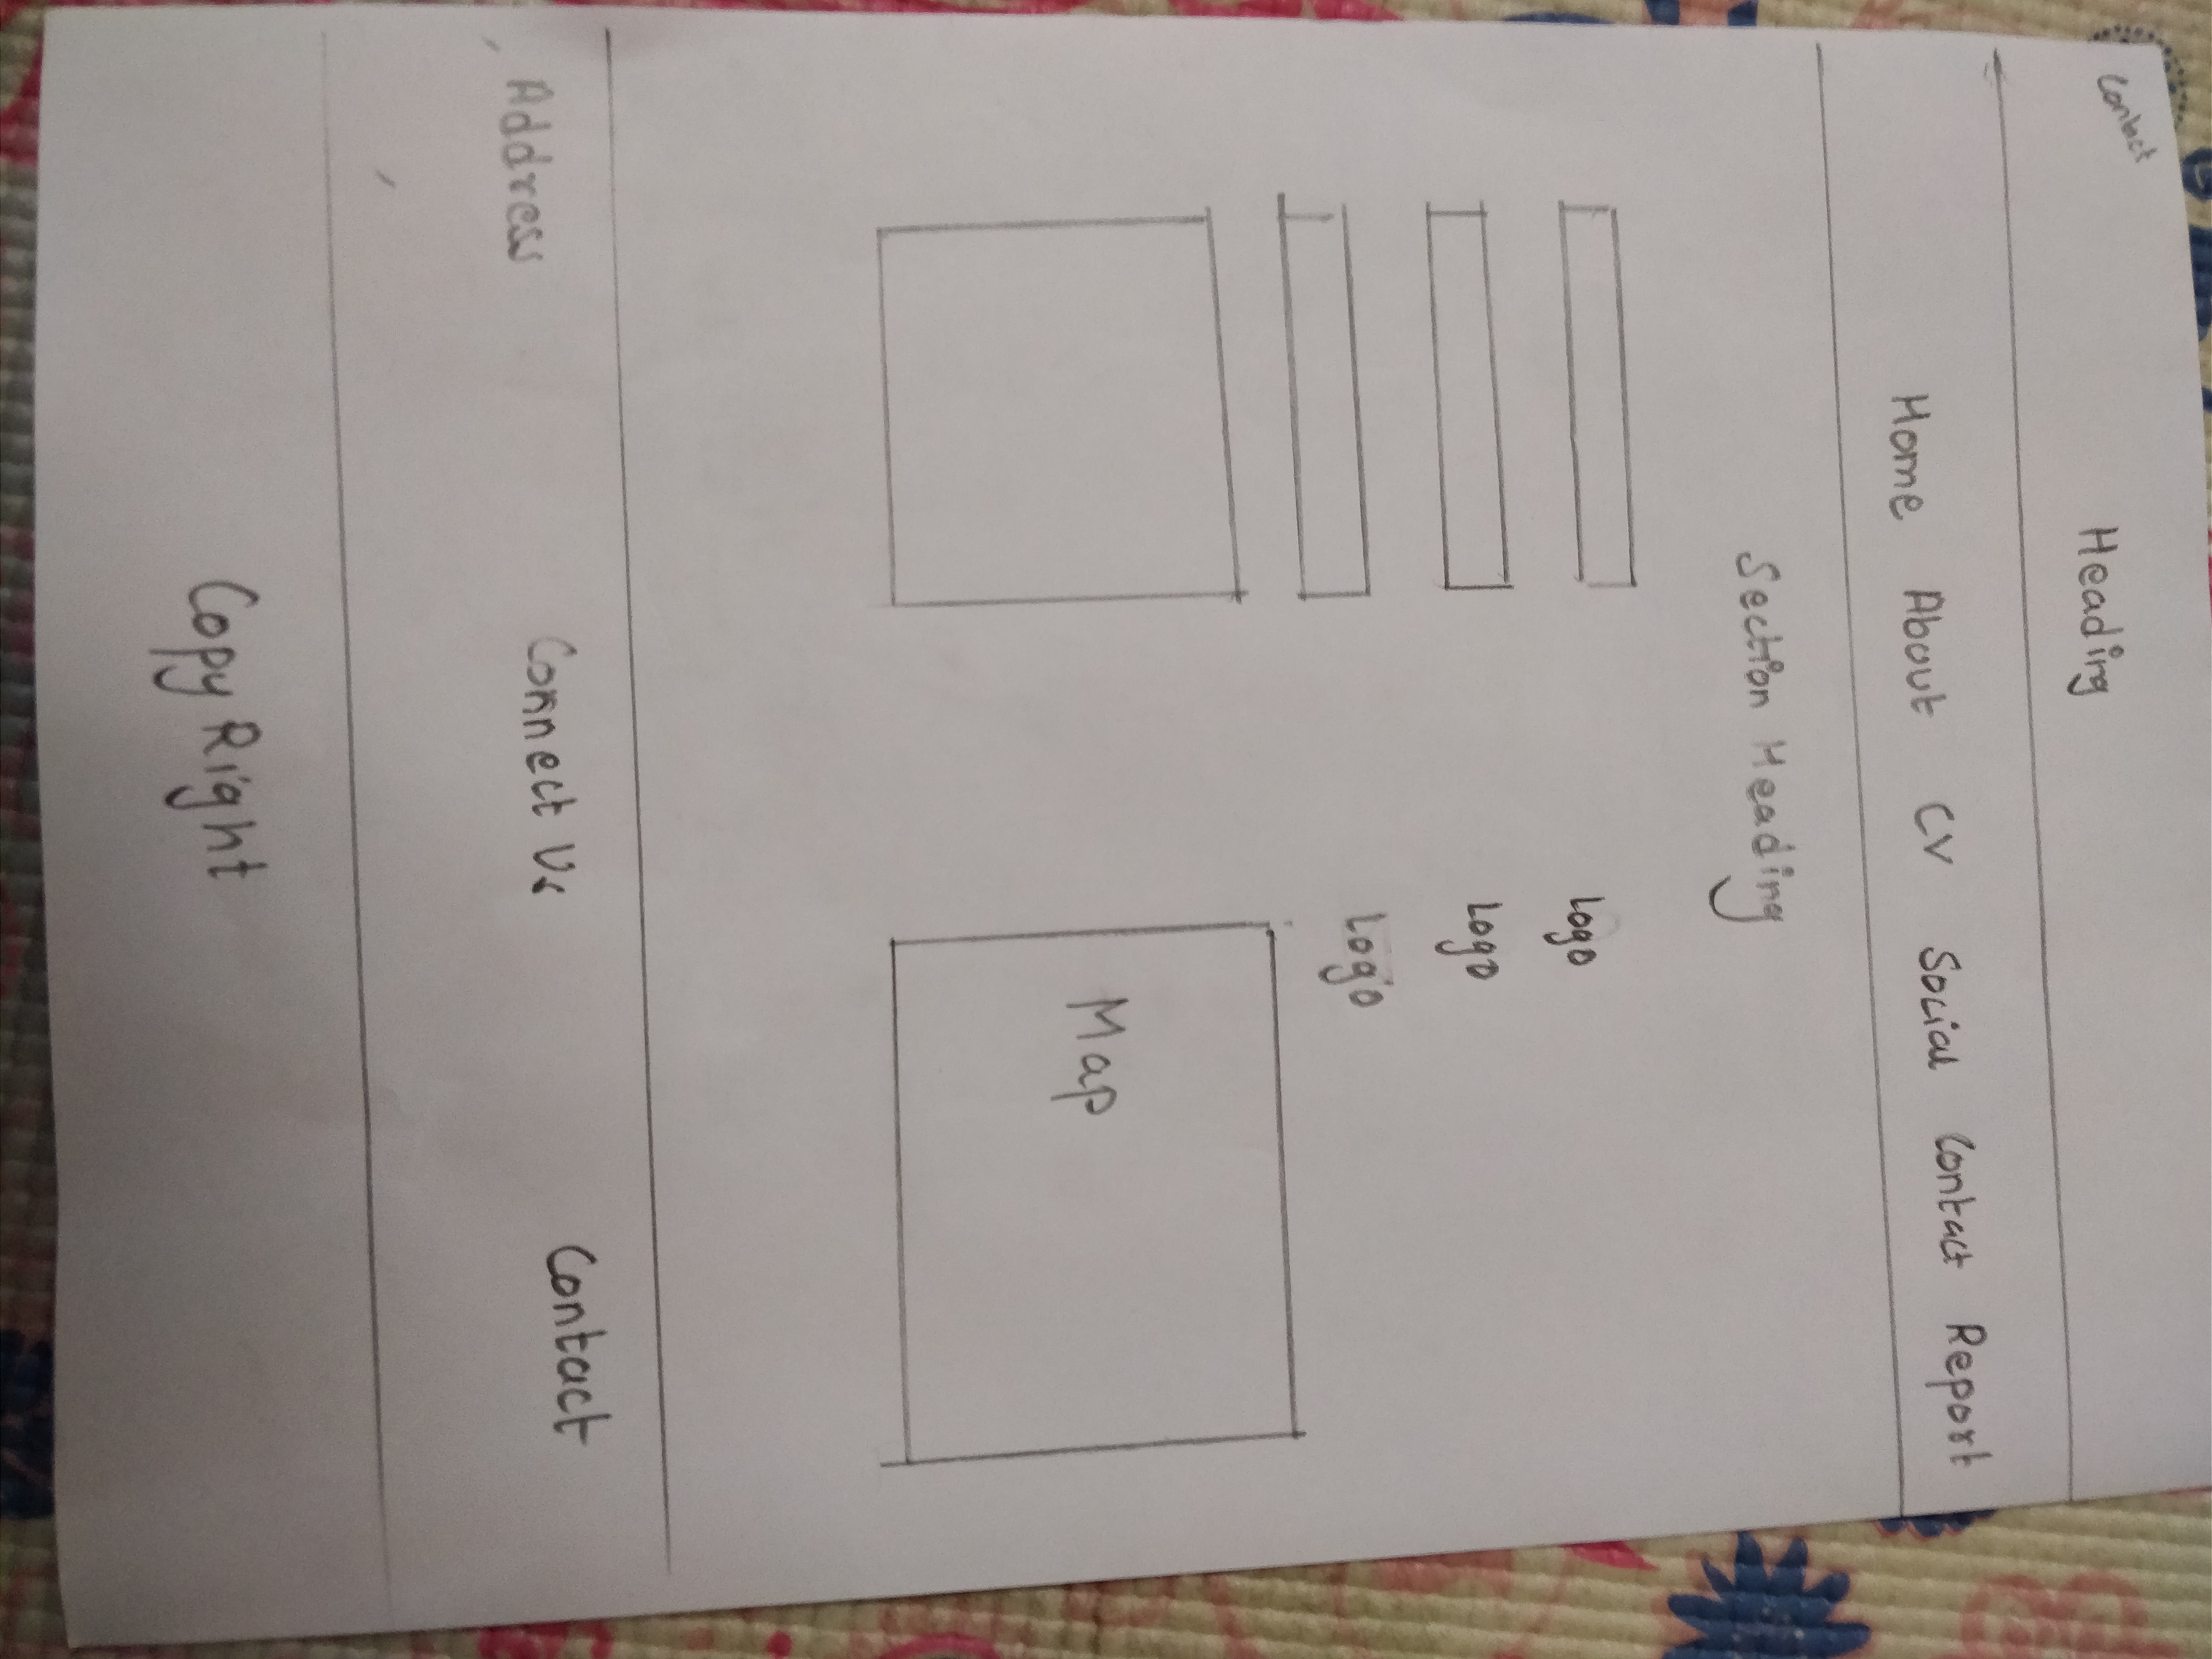 Contact
Heading
Home About CV Social Contact Report
Section Heading
Logo
Logo
Logo
Map
Address Connect Us Contact
Copy Right